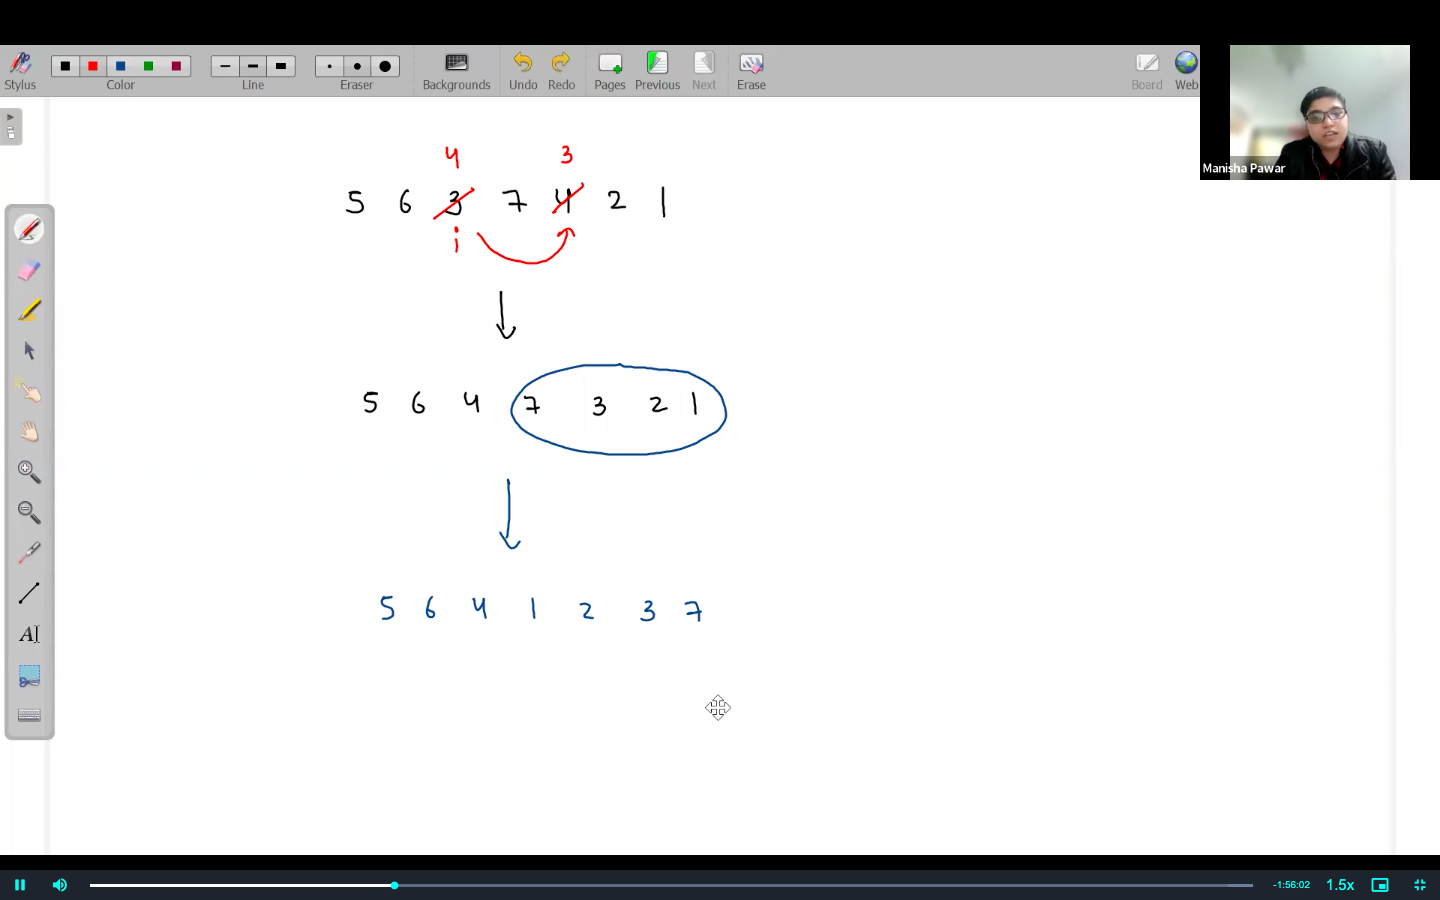 Stylus Color Line Eraser Backgrounds Undo Redo Pages Previous Next Erase Board Web
Manisha Pawar
4 3
5 6 3 7 4 2 1
i
5 6 4 7 3 2 1
5 6 4 1 2 3 7
A
-1:56:02 1.5x